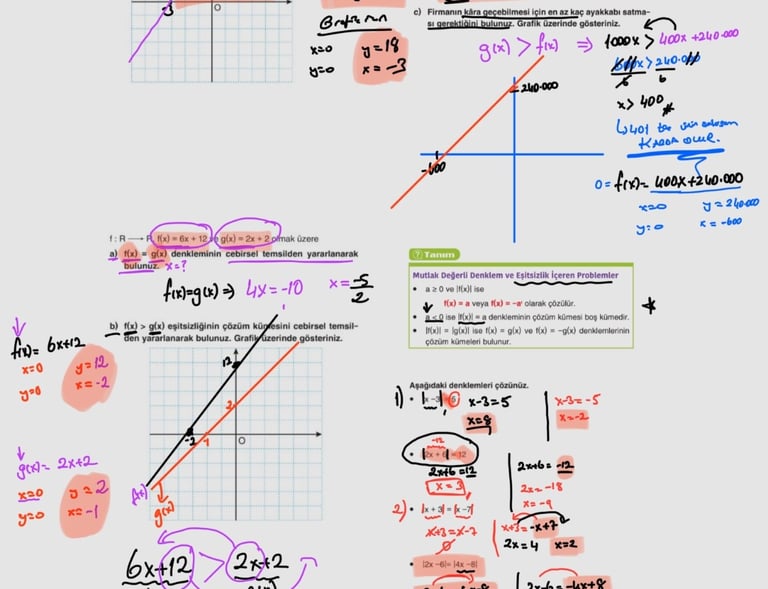 -3
O
Grafik
x=0 y=18
y=0 x=-3
c) Firmanın kâra geçebilmesi için en az kaç ayakkabı satma-
sı gerektiğini bulunuz. Grafik üzerinde gösteriniz.
g(x) > f(x) ⇒ 1000x > 400x +240.000
600x > 240.000
6 6
x > 400
240.000
-600
↳ 401
KARDA OLUR.
0= f(x)= 400x+240.000
x=0 y=240.000
y=0 x=-600
f : R → R, f(x) = 6x + 12 ve g(x) = 2x + 2 olmak üzere
a) f(x) = g(x) denkleminin cebirsel temsilden yararlanarak
bulunuz. x=?
f(x)=g(x) ⇒ 4x=-10 x=-5/2
b) f(x) > g(x) eşitsizliğinin çözüm kümesini cebirsel temsil-
den yararlanarak bulunuz. Grafik üzerinde gösteriniz.
f(x)= 6x+12
x=0 y=12
y=0 x=-2
g(x)= 2x+2
x=0 y=2
y=0 x=-1
12
2
-2 -1 O
f(x)
g(x)
6x+12 > 2x+2
Tanım
Mutlak Değerli Denklem ve Eşitsizlik İçeren Problemler
• a ≥ 0 ve |f(x)| ise
f(x) = a veya f(x) = –a' olarak çözülür.
• a < 0 ise |f(x)| = a denkleminin çözüm kümesi boş kümedir.
• |f(x)| = |g(x)| ise f(x) = g(x) ve f(x) = –g(x) denklemlerinin
çözüm kümeleri bulunur.
Aşağıdaki denklemleri çözünüz.
1) • |x –3| = 5 x-3=5 x-3=-5
x=8 x=-2
-12
• |2x + 6| = 12
2x+6=12 2x+6=-12
x=3 2x=-18
x=-9
2) • |x + 3| = |x –7|
x+3=x-7 x+3=-x+7
∅ 2x=4 x=2
• |2x –6| = |4x –8|
2x-6=-4x+8